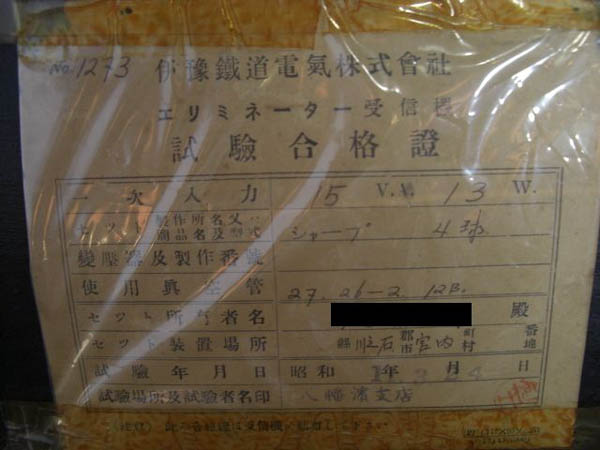 No. 1273 伊豫鐵道電氣株式會社
エリミネーター受信機
試驗合格證
一次入力 15 V.A. 13 W.
セット 製作所名又ハ商品名及型式 シャープ 4球
變壓器及製作番號
使用眞空管 27. 26-2. 12B.
セット所有者名 殿
セット裝置場所 縣 郡市 宮内 町村 番地
試驗年月日 昭和 年 月 日
試驗場所及試驗者名印 八幡濱支店